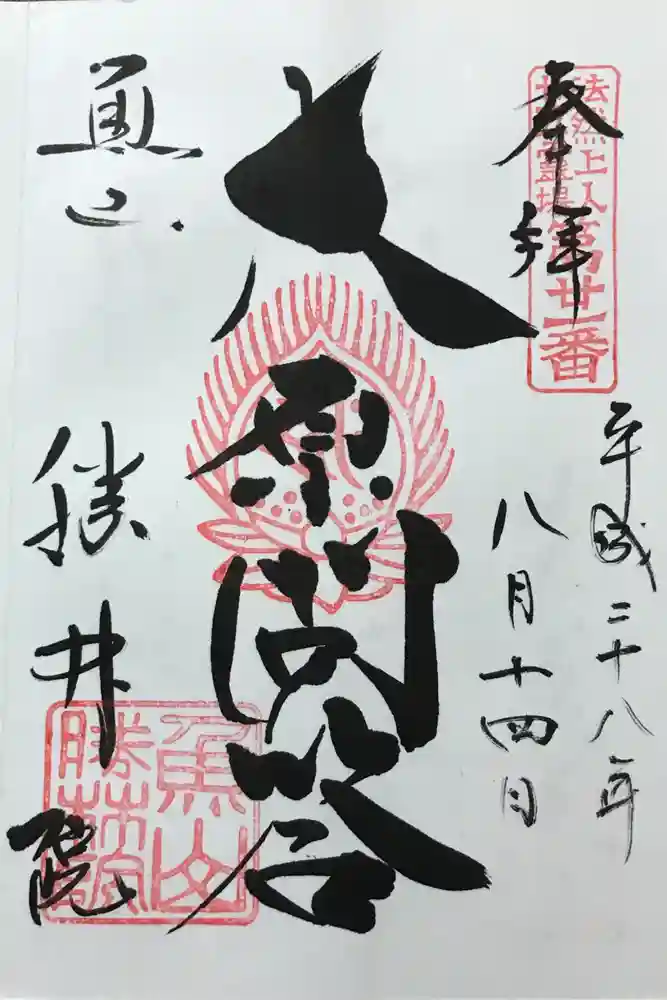 奉拝
法然上人
二十五霊場
第廿一番
平成二十八年
八月十四日
大原問答
魚山
勝林院
魚山
勝林院